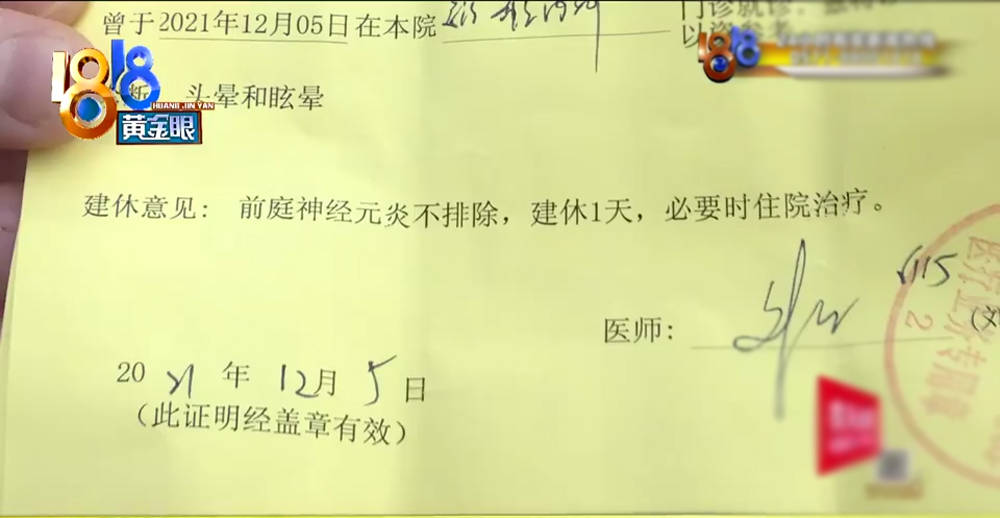 曾于2021年12月05日在本院
以资参考
1818
HUANG JIN YAN
黄金眼
断 头晕和眩晕
建休意见：前庭神经元炎不排除，建休1天，必要时住院治疗。
医师：
2021年12月5日
（此证明经盖章有效）
医疗业务专用章
2